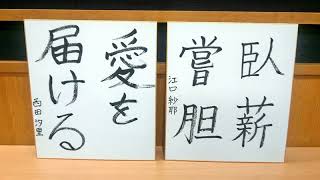 臥薪
嘗胆
江口紗耶
愛を
届ける
西田汐里